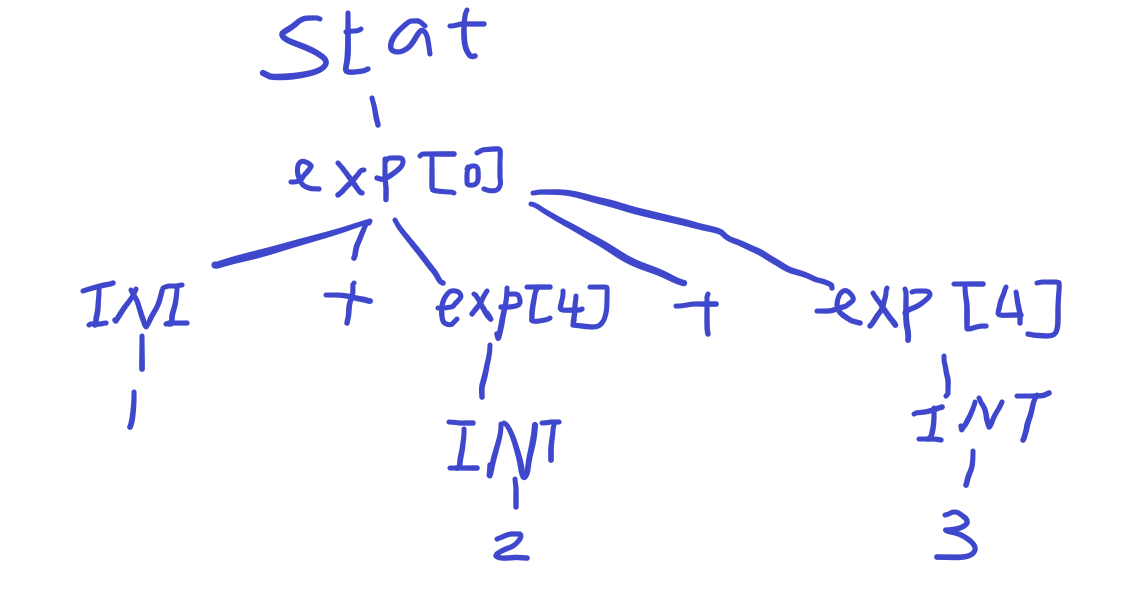 Stat
exp[0]
INI + exp[4] + exp[4]
1 INT INT
2 3